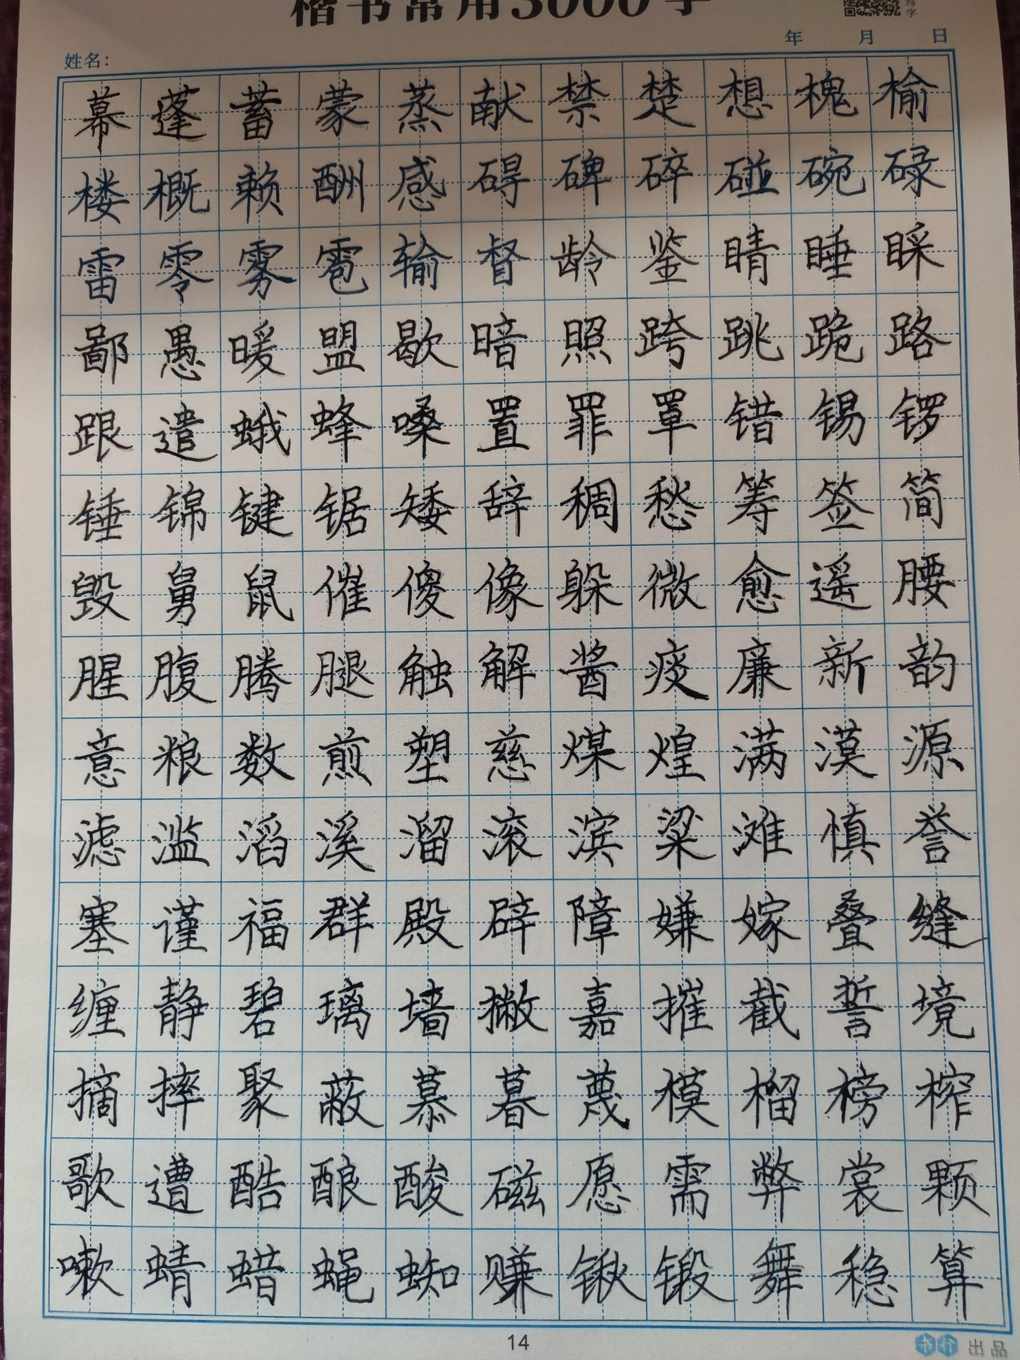 楷书常用3000字
写字
姓名： 年 月 日
幕蓬蓄蒙蒸献禁楚想槐榆
楼概赖酬感碍碑碎碰碗碌
雷零雾雹输督龄鉴睛睡睬
鄙愚暖盟歇暗照跨跳跪路
跟遣蛾蜂嗓置罪罩错锡锣
锤锦键锯矮辞稠愁筹签简
毁舅鼠催傻像躲微愈遥腰
腥腹腾腿触解酱痰廉新韵
意粮数煎塑慈煤煌满漠源
滤滥滔溪溜滚滨粱滩慎誉
塞谨福群殿辟障嫌嫁叠缝
缠静碧璃墙撇嘉摧截誓境
摘摔聚蔽慕暮蔑模榴榜榨
歌遭酷酿酸磁愿需弊裳颗
嗽蜻蜡蝇蜘赚锹锻舞稳算
14
出品